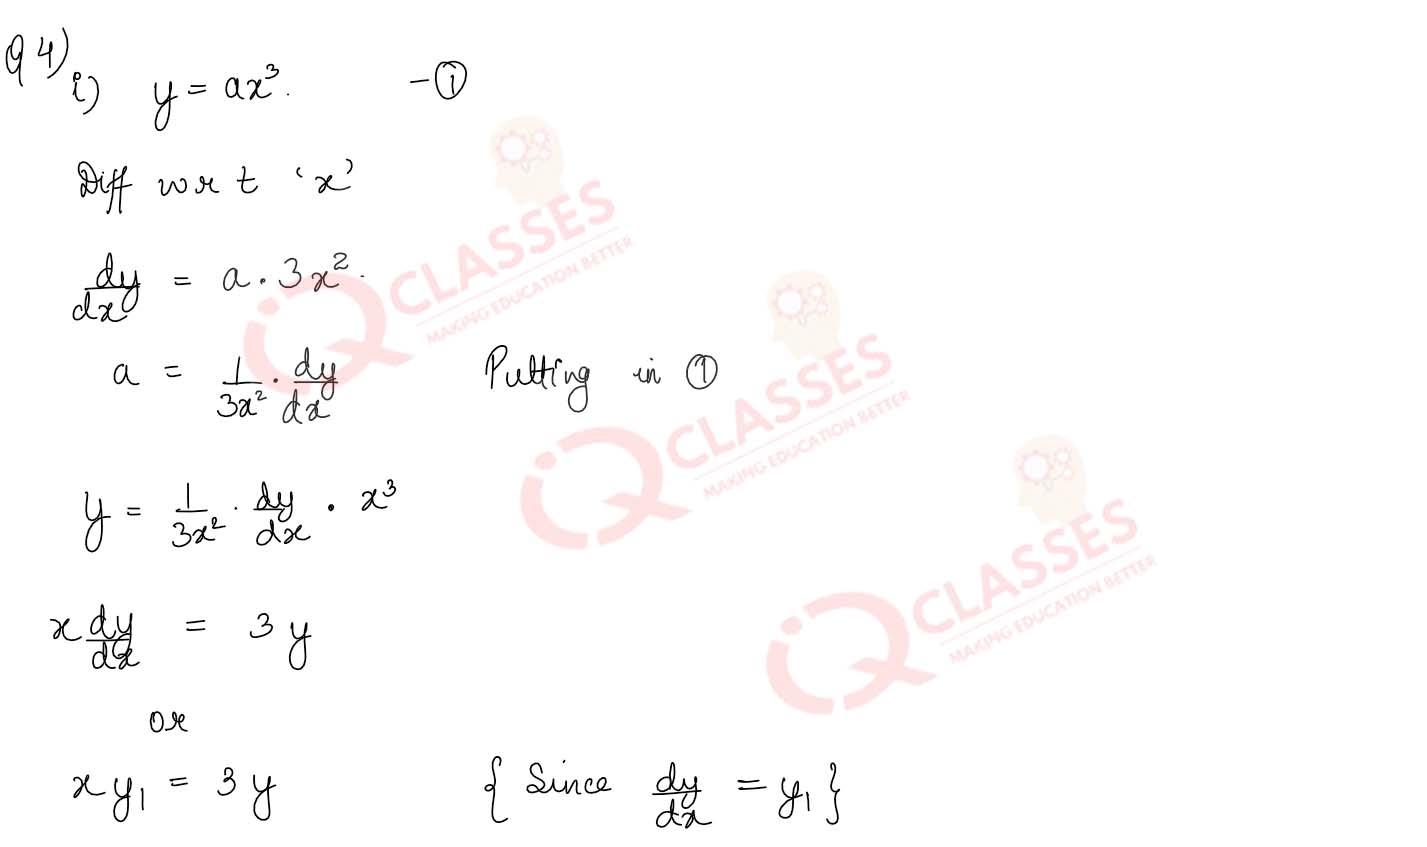 Q4)
i) y = ax³. -①
Diff wrt 'x'
dy/dx = a · 3x².
a = 1/3x² · dy/dx Putting in ①
y = 1/3x² · dy/dx · x³
x dy/dx = 3y
or
xy₁ = 3y { Since dy/dx = y₁ }
IQ CLASSES
MAKING EDUCATION BETTER
IQ CLASSES
MAKING EDUCATION BETTER
IQ CLASSES
MAKING EDUCATION BETTER